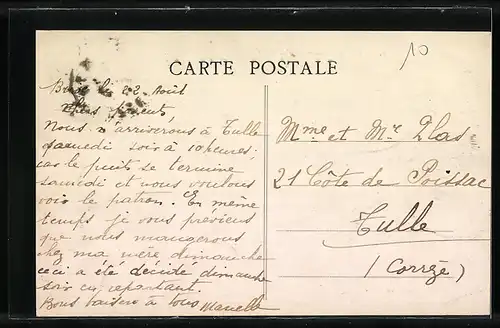 10
CARTE POSTALE
Brive le 22 Août
Chers parents,
Nous n'arriverons à Tulle
samedi soir à 10 heures,
car le puits se termine
samedi et nous voulons
voir le patron. En même
temps je vous préviens
que nous mangerons
chez ma mère dimanche
ceci a été décidé dimanche
soir en repartant.
Bons baisers à tous
Mme et Mr Plas
21 Côte de Poissac
Tulle
(Corrèze)